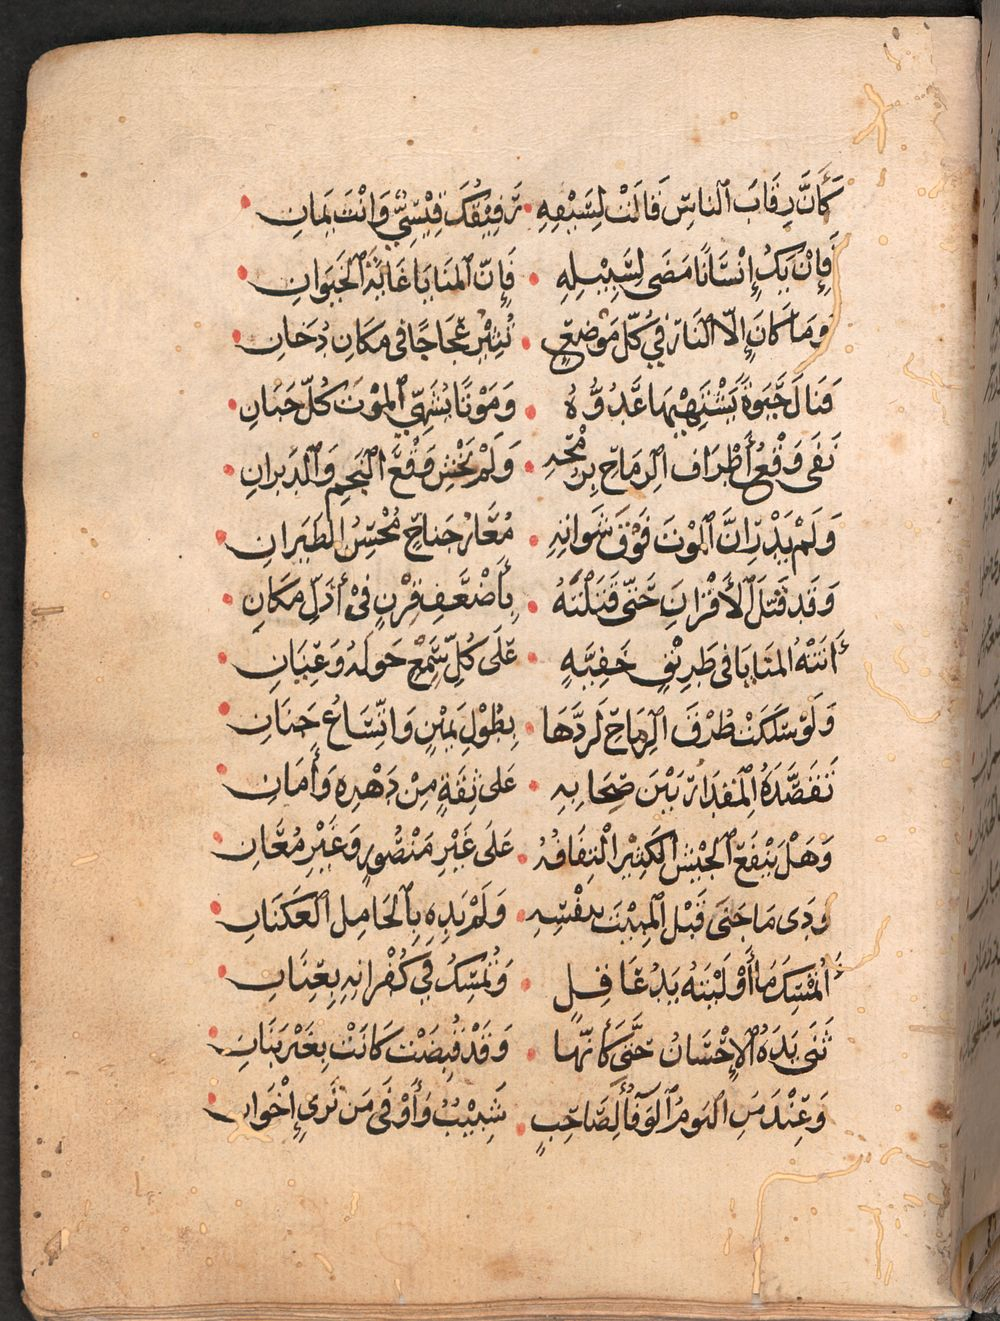 كَأَنَّ رِقَابَ ٱلناسِ قَالَتْ لِسَيْفِهِ • رَفِيْقُكَ قَيْسِيٌّ وَانْتَ يَمَانِ •
فَإِنْ يَكُ إِنْسَانًا مَضَى لِسَبِيْلِهِ • فَإِنّ ٱلمَنَايَا غَايَةُ ٱلحَيَوَانِ •
وَمَا كَانَ إِلّا ٱلنَارَ فِي كُلِّ مَوْضِعٍ • تُثِيْرُ عَجَاجًا فى مَكَانِ دُخَانِ •
فَنَالَ حَيَوةً يَشْتَهِيْهَا عَدُوُّهُ • وَمَوْتًا يُشَهِّي ٱلمَوْتَ كُلَّ جَبَانِ •
نَفَى وَقْعَ أَطْرَافِ ٱلرِمَاحِ بِرُمْحِهِ • وَلَمْ يَخْشَ وَقْعَ ٱلنَجمِ وَٱلدَبَرانِ •
وَلَمْ يَدْرِ انَّ ٱلمَوْتَ فَوْقَ شَوَاتِهِ • مُعَارُ جَناحٍ مُحْسِنُ الطَيَرانِ •
وَقَد قَتَلَ ٱلأَقْرَانَ حَتّى قَتَلْتَهُ • بِأَضْعَفِ قِرْنٍ فىْ أذَلِّ مَكَانِ •
أَتَتْهُ المَنَايَا فى طَرِيْقٍ خَفِيَّةٍ • عَلَى كُلِّ سَمْعٍ حَولَهُ وَعِيَانِ •
وَلَوْ سَلَكَتْ طُرْقَ ٱلرِمَاحِ لَرَدَّهَا • بِطُوْلِ يَمِيْنٍ وَاتِّسَاعِ جَنَانِ •
تَقَصَّدَهُ ٱلمِقدَارُ بَيْنَ صِحَابِهِ • عَلى ثِقَةٍ مِنْ دَهْرِهِ وَأَمَانِ •
وَهَلْ يَنْفَعُ ٱلجَيْشُ الكَثِيْرُ الْتِفَافُهُ • عَلَى غَيْرِ مَنْصُورٍ وَغَيْرِ مُعَانِ •
وَدى مَا جَنَى قَبْلَ ٱلمَبِيْتِ بِنَفْسِهِ • وَلَمْ يَدِهِ بِٱلجَامِلِ ٱلعَكَنَانِ •
أَتُمْسِكُ مَا أَوْلَيْتَهُ يَدُ عَاقِلٍ • وَتُمْسِكُ فِي كُفْرَانِهِ بِعِنَانِ •
ثَنَى يَدَهُ ٱلإِحْسَانُ حَتَّى كَأَنَّها • وَقَدْ قُبِضَتْ كَانَتْ بِغَيْرِ بَنَانِ •
وَعِنْدَ مَنِ اليَومَ ٱلوَفَاءُ لِصَاحِبٍ • شَبِيْبٌ وَأَوْفَى مَن تَرى إِخْوَانِ •